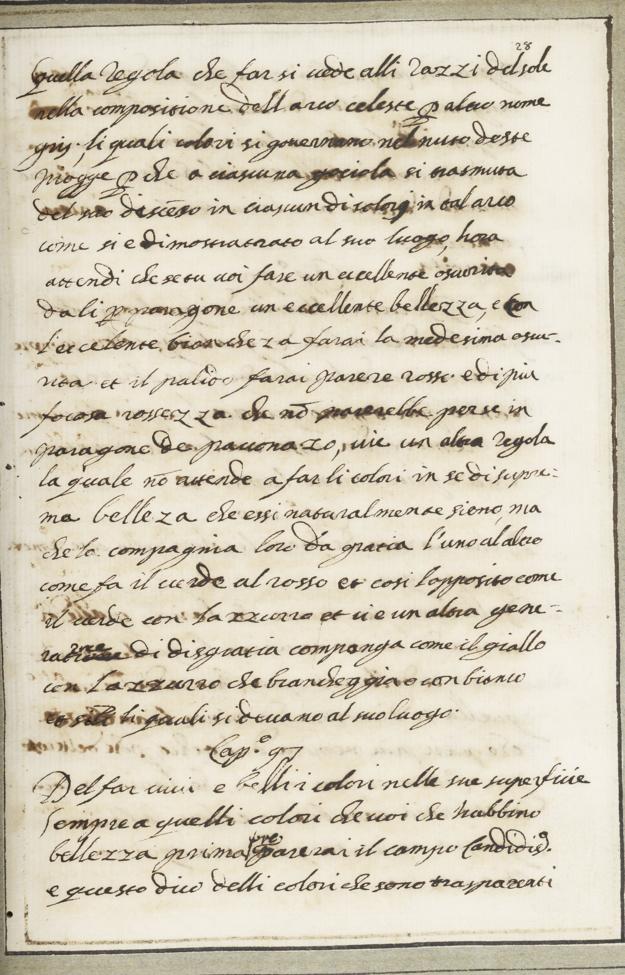 28
quella regola che far si vede alli razzi del sole
nella compositione dell arco celeste p altro nome
gris, li quali colori si governano nel muto deste
piogge p che a ciascuna gociola si trasmuta
del suo discēso in ciascun di colorj in tal arco
come si e dimostrattato al suo luogo, hora
attendi che se tu voi fare un eccellente oscurita
dali p paragone un eccellente bellezza, e con
l'eccelente biancheza farai la medesima oscu-
rita et il palido farai parere rosso e di piu
focosa rossezza che nō parerebbe per se in
paragone de pavonazo, vie un altra regola
la quale nō attende a far li colori in se di supre-
ma belleza che essi naturalmente sieno, ma
che la compagnia loro dia gratia l'uno al altro
come fa il verde al rosso et cosi l'opposito come
il verde con lazzurro et vi e un altra gene-
di disgratia componga come il giallo
con lazzurro che biancheggia o con bianco
et simili li quali si devano al suo luogo.
Cap.o 97
Del far vivi e belli i colori nelle sue superfitie
sempre a quelli colori che voi che habbino
bellezza prima pre parerai il campo Candidis.o
e questo dico delli colori che sono trasparenti